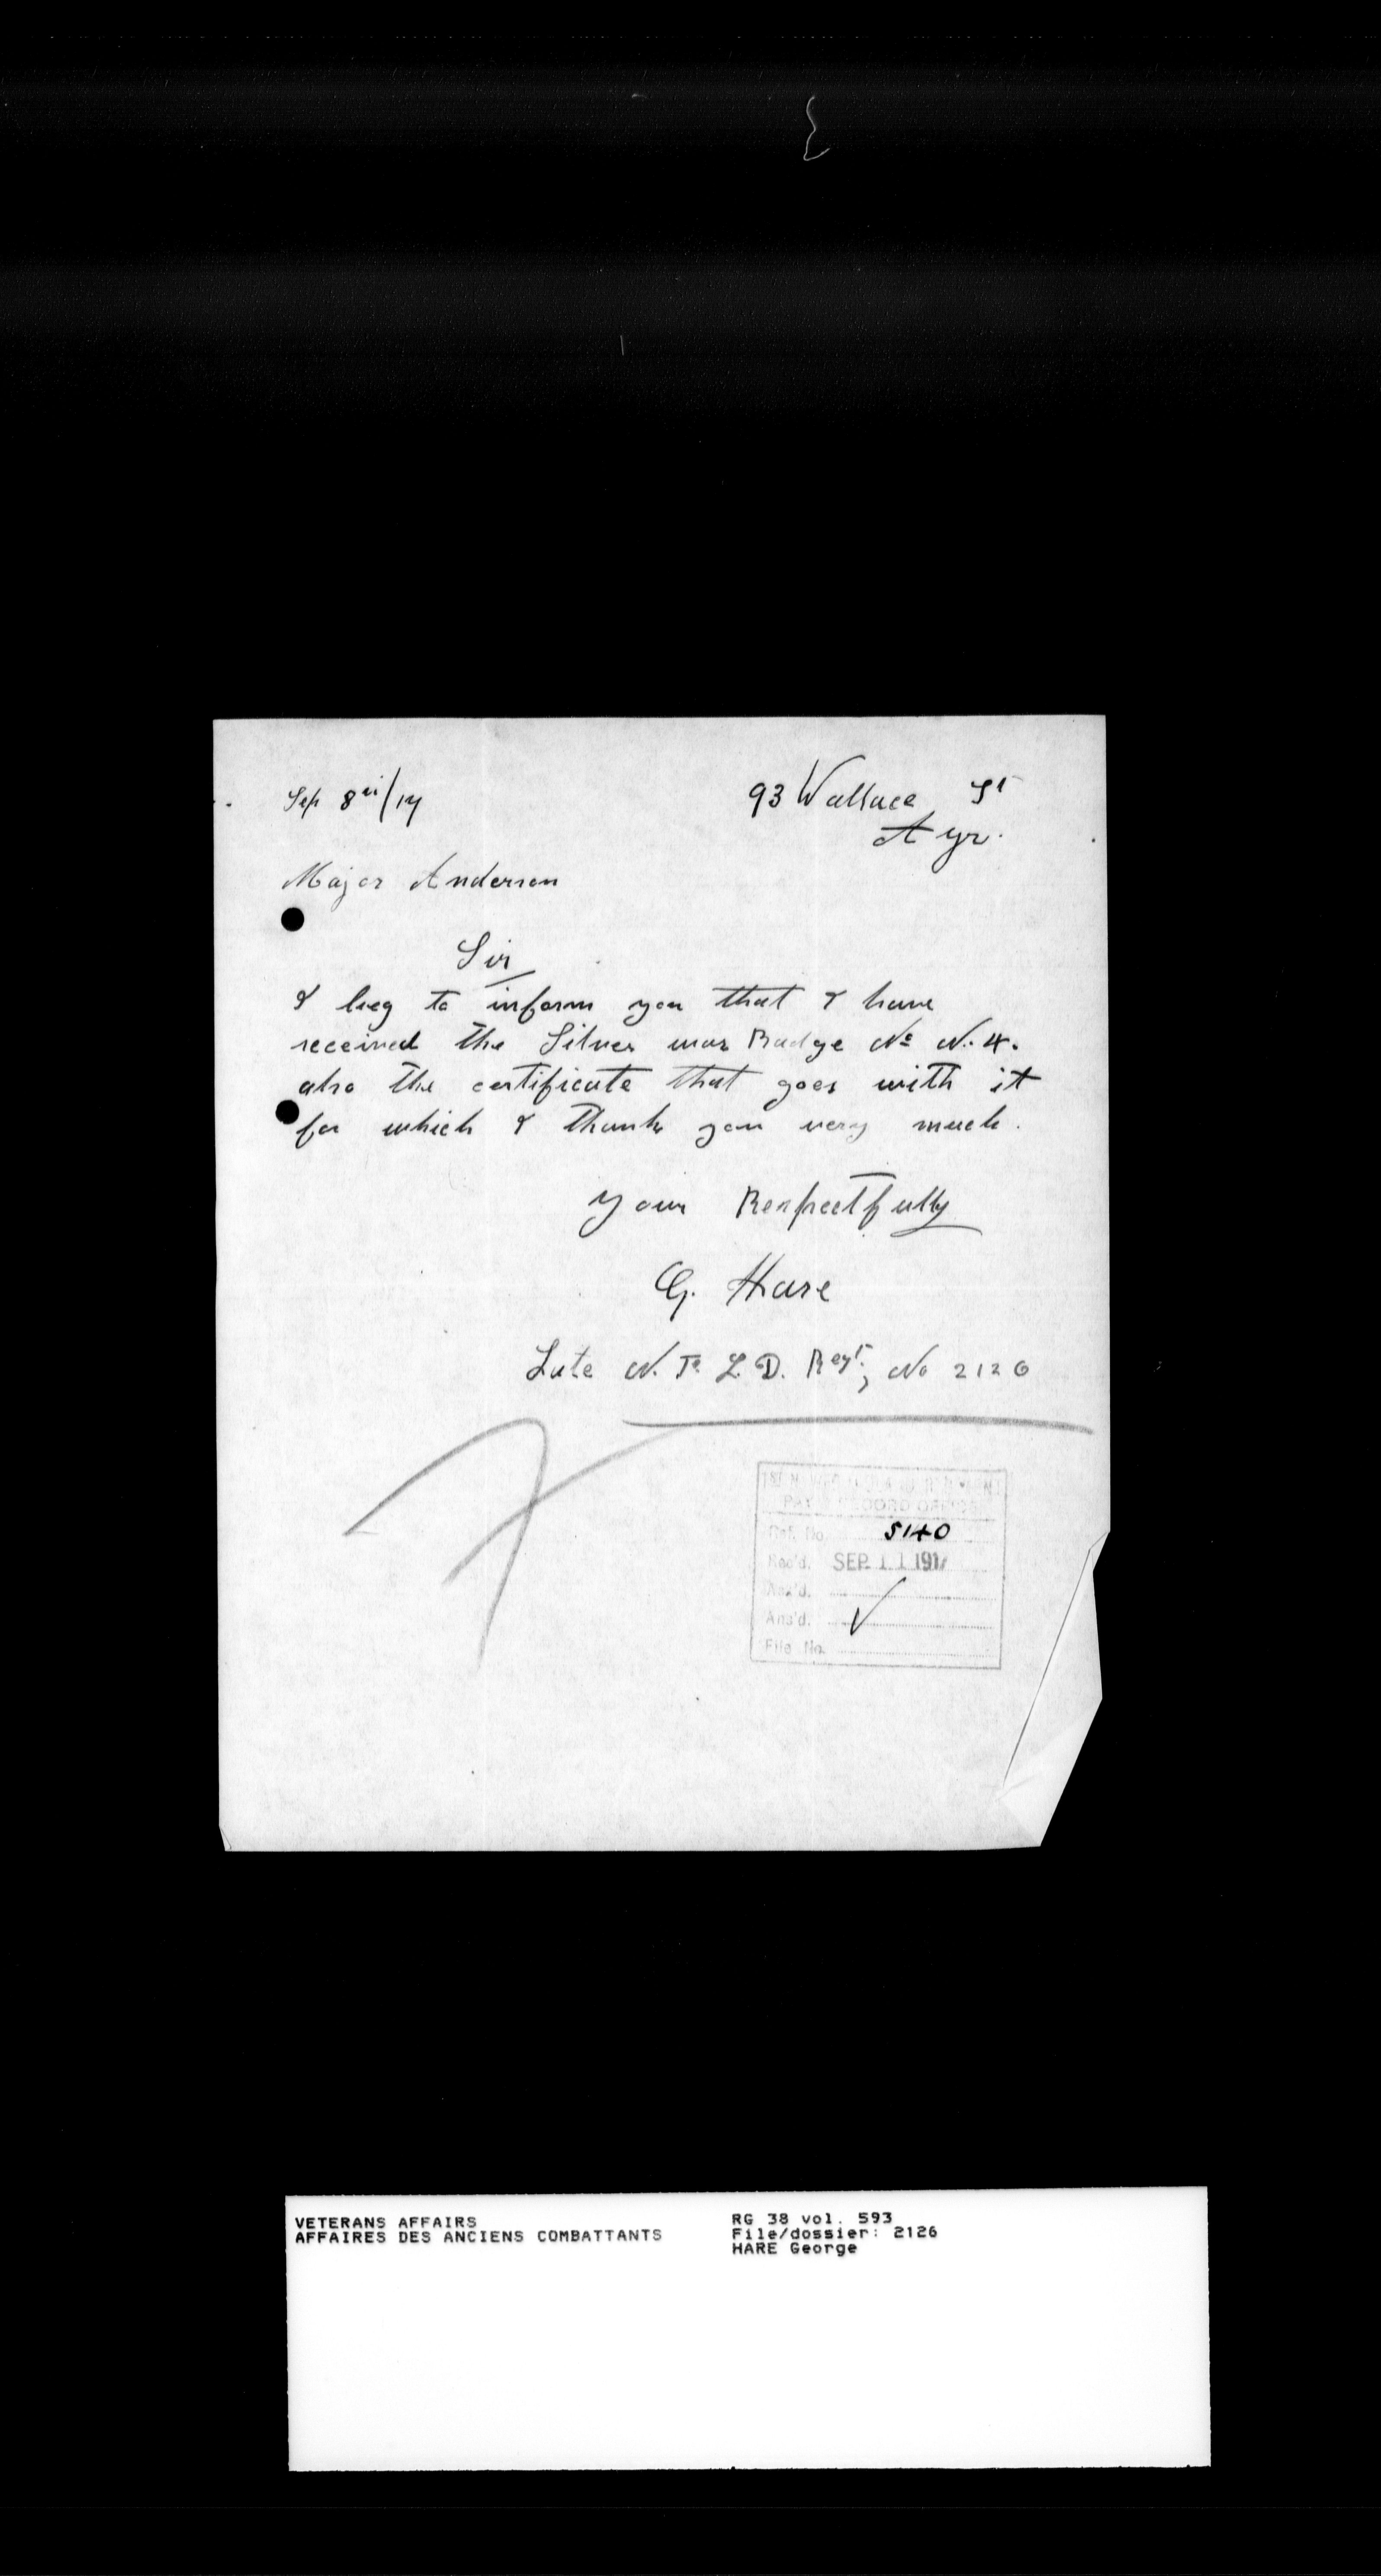 Sep 8th/17
93 Wallace St
Ayr.
Major Anderson
Sir
I beg to inform you that I have
received the Silver war Badge No N. 4.
also the certificate that goes with it
for which I thank you very much.
your Respectfully
G. Hare
Late N. Fd L. D. Regt; No 2126
1ST NEWFOUNDLAND REGIMENT
PAY & RECORD OFFICE
Ref. No. 5140
Rec'd. SEP 11 1917
Ack'd.
Ans'd. ✓
File No.
VETERANS AFFAIRS
AFFAIRES DES ANCIENS COMBATTANTS
RG 38 vol. 593
File/dossier: 2126
HARE George